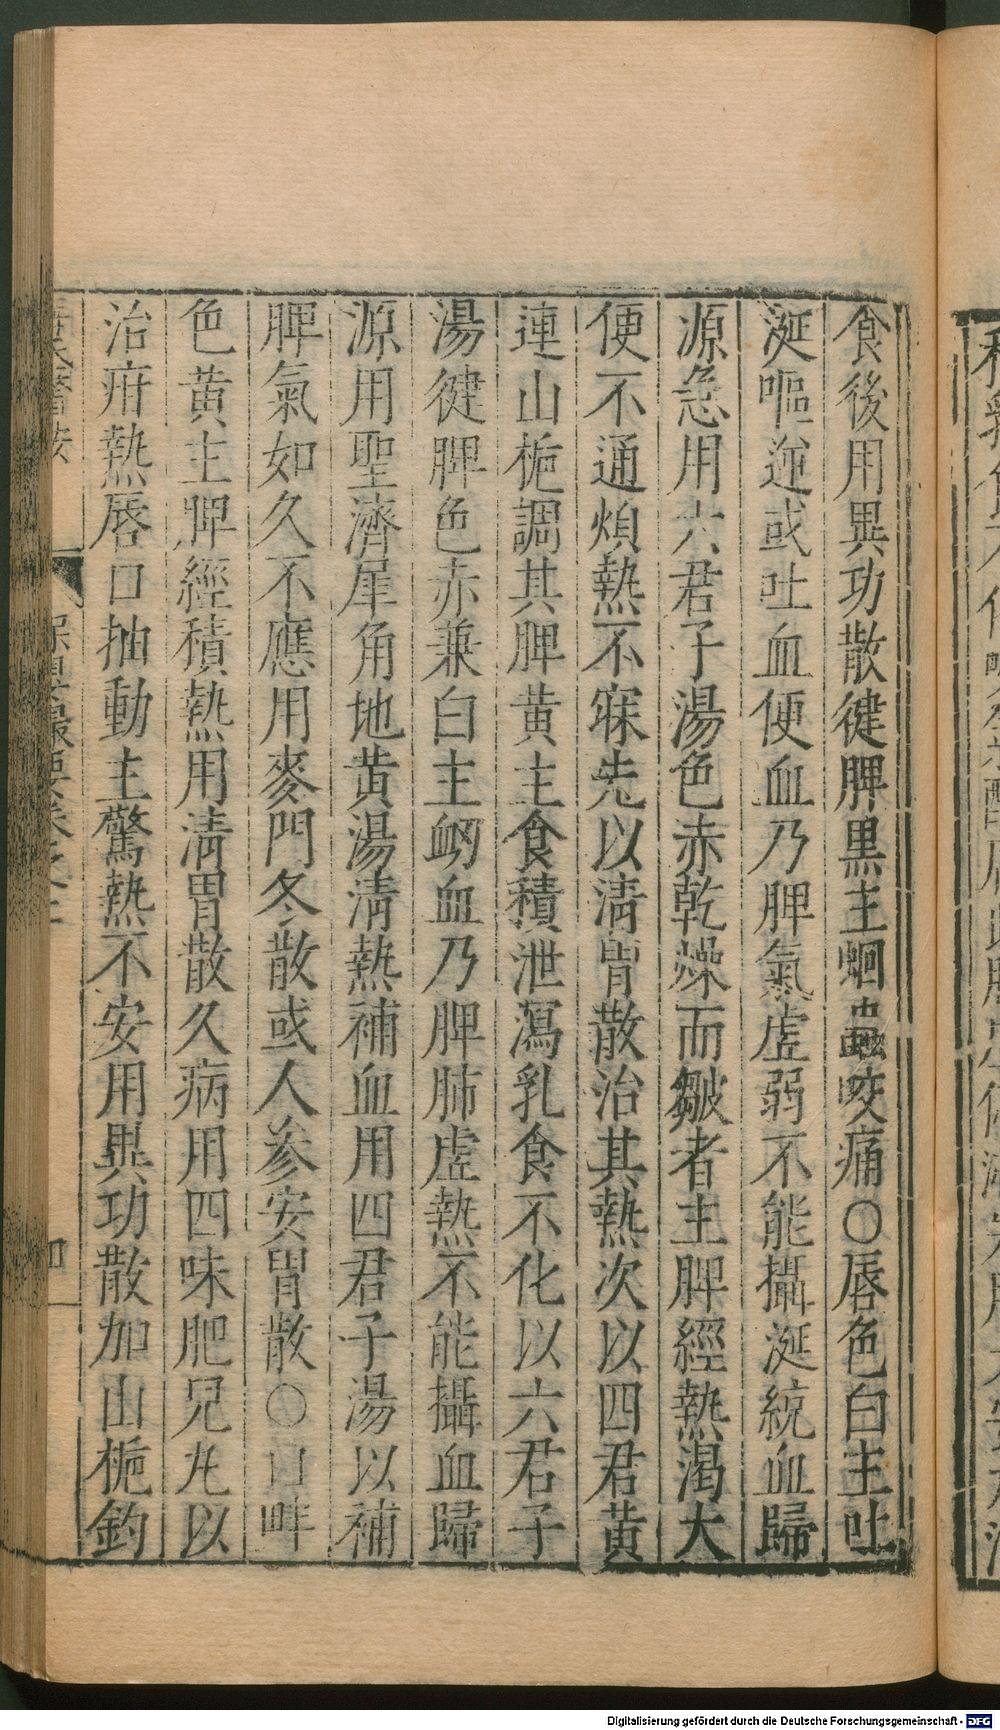 食後用異功散健脾黒主蛔蟲咬痛○唇色白主吐
涎嘔逆或吐血便血乃脾氣虛弱不能攝涎統血歸
源急用六君子湯色赤乾燥而皺者主脾經熱渴大
便不通煩熱不寐先以清胃散治其熱次以四君黃
連山梔調其脾黃主食積泄瀉乳食不化以六君子
湯健脾色赤兼白主衂血乃脾肺虛熱不能攝血歸
源用聖濟犀角地黃湯清熱補血用四君子湯以補
脾氣如久不應用麥門冬散或人参安胃散○口畔
色黃主脾經積熱用清胃散久病用四味肥兒丸以
治疳熱唇口抽動主驚熱不安用異功散加山梔釣
保嬰撮要卷之一
四
Digitalisierung gefördert durch die Deutsche Forschungsgemeinschaft - DFG